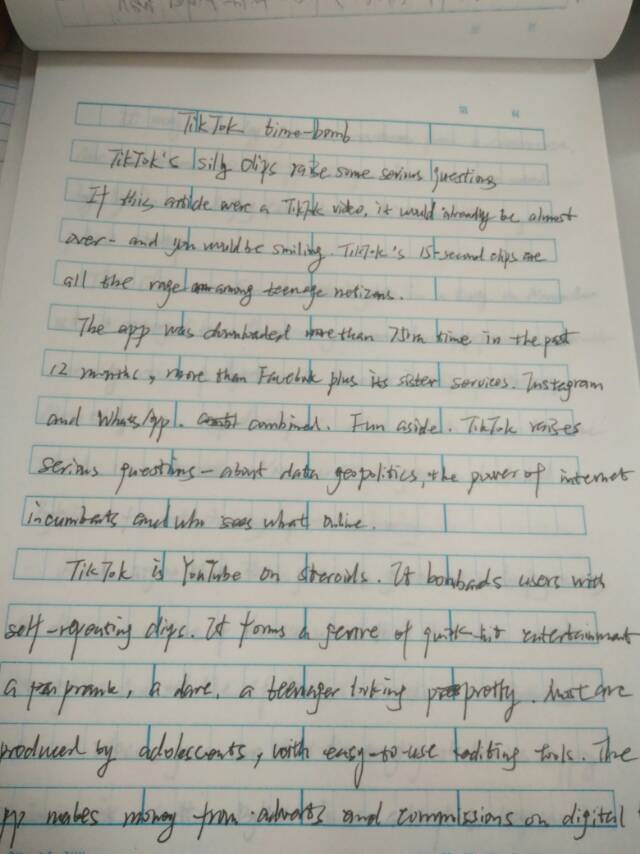 TikTok time-bomb
TikTok's silly clips raise some serious questions
If this article were a TikTok video, it would already be almost
over - and you would be smiling. TikTok's 15-second clips are
all the rage among teenage netizens.
The app was downloaded more than 750m time in the past
12 months, more than Facebook plus its sister services. Instagram
and WhatsApp. combined. Fun aside. TikTok raises
serious questions - about data geopolitics, the power of internet
incumbents and who sees what online.
TikTok is YouTube on steroids. It bombards users with
self-repeating clips. It forms a genre of quick-hit entertainment
a prank, a dare, a teenager looking pretty. Most are
produced by adolescents, with easy-to-use editing tools. The
pp makes money from adverts and commissions on digital